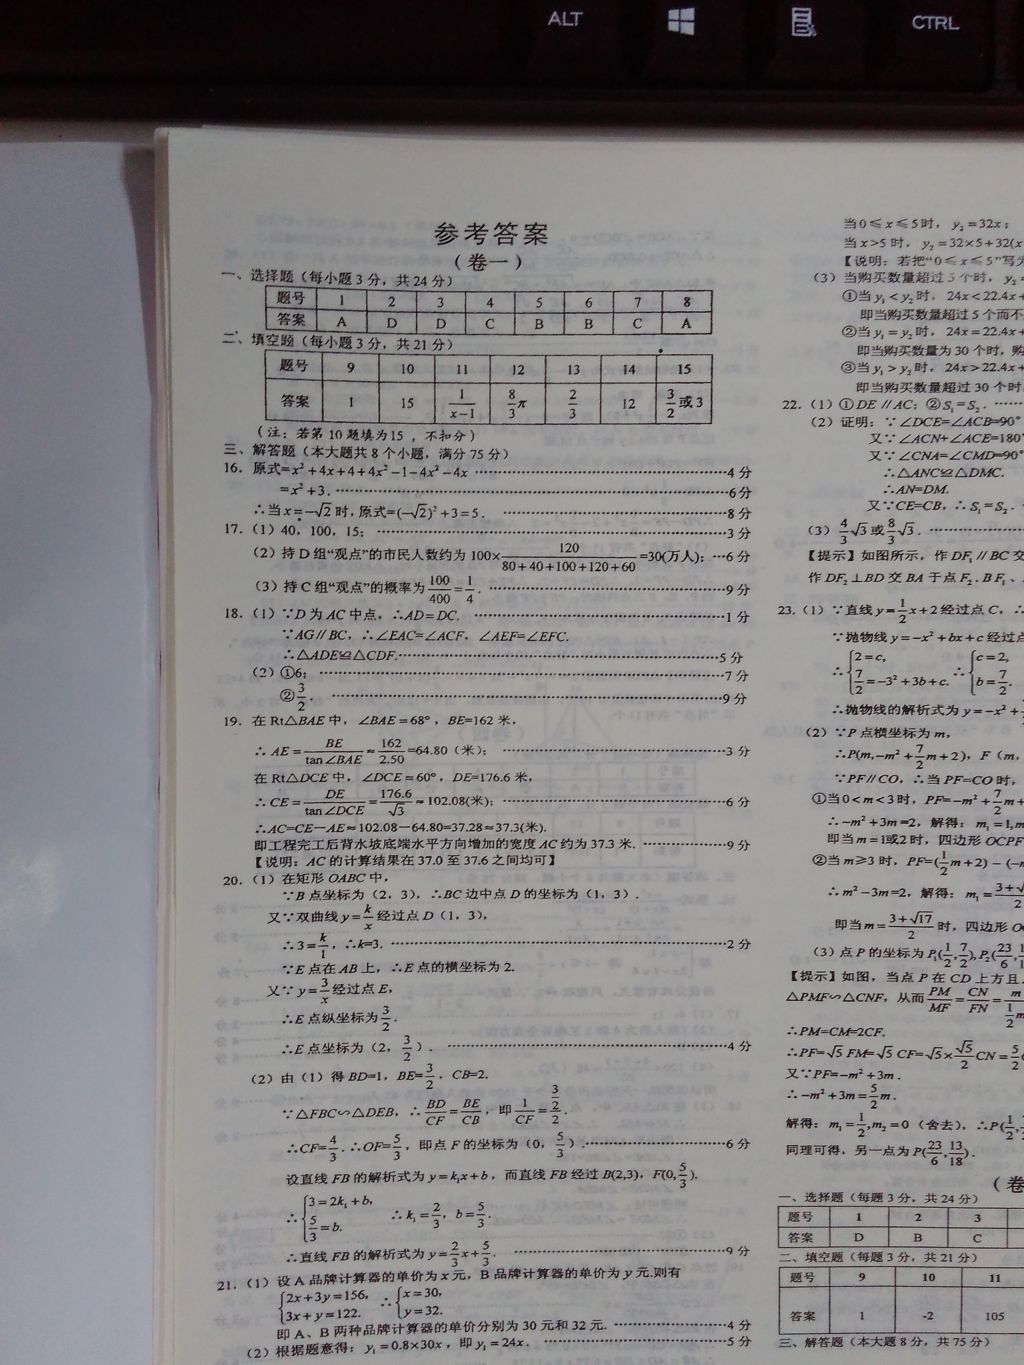 ALT
CTRL
参考答案
（卷一）
一、选择题（每小题3分，共24分）
题号 1 2 3 4 5 6 7 8
答案 A D D C B B C A
二、填空题（每小题3分，共21分）
题号 9 10 11 12 13 14 15
答案 1 15 1/(x-1) 8/3π 2/3 12 3/2或3
（注：若第10题填为15，不扣分）
三、解答题（本大题共8个小题，满分75分）
16．原式=x²+4x+4+4x²-1-4x²-4x ……4分
=x²+3．……6分
∴当x=-√2时，原式=(-√2)²+3=5．……8分
17．（1）40，100，15；……3分
（2）持D组“观点”的市民人数约为100×120/(80+40+100+120+60)=30(万人)；…6分
（3）持C组“观点”的概率为100/400=1/4．……9分
18．（1）∵D为AC中点，∴AD=DC．……1分
∵AG∥BC，∴∠EAC=∠ACF，∠AEF=∠EFC.
∴△ADE≌△CDF.……5分
（2）①6；……7分
②3/2．……9分
19．在Rt△BAE中，∠BAE=68°，BE=162米，
∴AE=BE/tan∠BAE≈162/2.50=64.80（米）；……3分
在Rt△DCE中，∠DCE=60°，DE=176.6米，
∴CE=DE/tan∠DCE=176.6/√3≈102.08(米)；……6分
∴AC=CE－AE≈102.08－64.80=37.28≈37.3(米).
即工程完工后背水坡底端水平方向增加的宽度AC约为37.3米．……9分
【说明：AC的计算结果在37.0至37.6之间均可】
20．（1）在矩形OABC中，
∵B点坐标为（2，3），∴BC边中点D的坐标为（1，3）．
又∵双曲线y=k/x经过点D（1，3），
∴3=k/1，∴k=3.……2分
∵E点在AB上，∴E点的横坐标为2.
又∵y=3/x经过点E，
∴E点纵坐标为3/2．
∴E点坐标为（2，3/2）．……4分
（2）由（1）得BD=1，BE=3/2．CB=2.
∵△FBC∽△DEB，∴BD/CF=BE/CB，即1/CF=(3/2)/2．
∴CF=4/3．∴OF=5/3，即点F的坐标为（0，5/3）.……6分
设直线FB的解析式为y=k₁x+b，而直线FB经过B(2,3)，F(0,5/3).
∴{3=2k₁+b, 5/3=b. ∴k₁=2/3，b=5/3.
∴直线FB的解析式为y=2/3x+5/3．……9分
21．（1）设A品牌计算器的单价为x元，B品牌计算器的单价为y元.则有
{2x+3y=156, 3x+y=122. ∴{x=30, y=32.
即A、B两种品牌计算器的单价分别为30元和32元．……4分
（2）根据题意得：y₁=0.8×30x，即y₁=24x．……5分
当0≤x≤5时，y₂=32x；
当x>5时，y₂=32×5+32(x
【说明：若把“0≤x≤5”写为
（3）当购买数量超过5个时，y₂=
①当y₁<y₂时，24x<22.4x+
即当购买数量超过5个而不
②当y₁=y₂时，24x=22.4x+
即当购买数量为30个时，购
③当y₁>y₂时，24x>22.4x+
即当购买数量超过30个时
22．（1）①DE∥AC；②S₁=S₂．……
（2）证明：∵∠DCE=∠ACB=90°
又∵∠ACN+∠ACE=180°
又∵∠CNA=∠CMD=90°
∴△ANC≌△DMC.
∴AN=DM.
又∵CE=CB，∴S₁=S₂．
（3）4/3√3或8/3√3．……
【提示】如图所示，作DF₁∥BC交
作DF₂⊥BD交BA于点F₂．BF₁、
23．（1）∵直线y=1/2x+2经过点C，∴
∵抛物线y=-x²+bx+c经过点
∴{2=c, 7/2=-3²+3b+c. ∴{c=2, b=7/2.
∴抛物线的解析式为y=-x²+
（2）∵P点横坐标为m，
∴P(m,-m²+7/2m+2)，F（m，
∵PF∥CO，∴当PF=CO时，
①当0<m<3时，PF=-m²+7/2m+
∴-m²+3m=2，解得：m₁=1,m
即当m=1或2时，四边形OCPF
②当m≥3时，PF=(1/2m+2)-(-m
∴m²-3m=2，解得：m₁=(3+√
即当m=(3+√17)/2时，四边形O
（3）点P的坐标为P₁(1/2,7/2),P₂(23/6,1
【提示】如图，当点P在CD上方且
△PMF∽△CNF，从而PM/MF=CN/FN=m/(1/2m
∴PM=CM=2CF.
∴PF=√5FM=√5CF=√5×√5/2CN=5/2
又∵PF=-m²+3m．
∴-m²+3m=5/2m．
解得：m₁=1/2,m₂=0（舍去），∴P(1/2,
同理可得，另一点为P(23/6,13/18)．
（卷
一、选择题（每题3分，共24分）
题号 1 2 3
答案 D B C
二、填空题（每题3分，共21分）
题号 9 10 11
答案 1 -2 105
三、解答题（本大题8分，共75分）